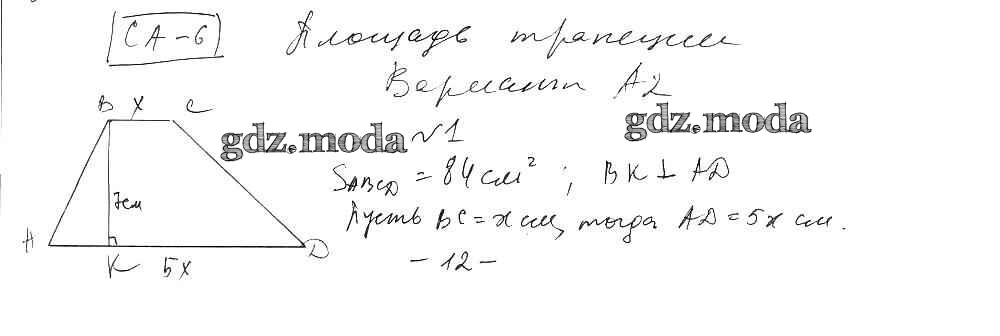 СА-6 Площадь трапеции
Вариант А2
B x C
gdz.moda
gdz.moda
№1
S_ABCD = 84 см² ; BK ⊥ AD
7см
Пусть BC = x см, тогда AD = 5x см.
A D
K 5x
- 12 -